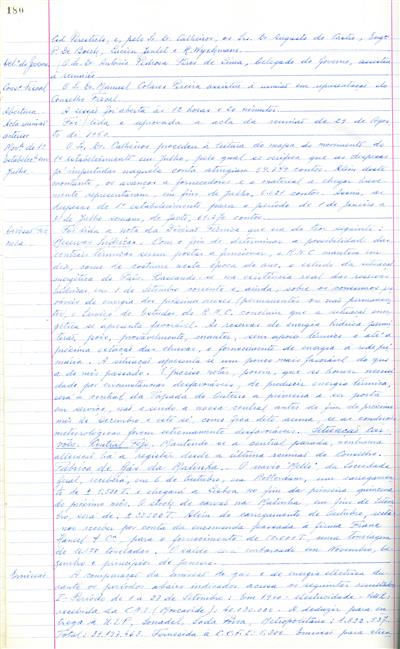 180
Cid Perestrelo, e, pelo Sr. Dr. Calheiros, os Srs. Dr. Augusto de Castro, Engº
P. De Boeck, Lucien Goulet e R. Wyckmans.
Del. do Governo O Sr. Dr. António Pedrosa Pires de Lima, Delegado do Governo, assistiu
à reunião.
Cons. Fiscal O Sr. Dr. Manuel Colares Pereira assistiu à reunião em representação do
Conselho Fiscal.
Abertura A sessão foi aberta às 12 horas e 20 minutos.
Acta reunião anterior Foi lida e aprovada a acta da reunião de 29 de Agosto
de 1960.
Movº de 1º Estabelecº em Julho O Sr. Dr. Calheiros procedeu à leitura do mapa do movimento de
1º estabelecimento em Julho, pelo qual se verifica que as despesas
já imputadas naquela conta atingiam contos. Além deste
montante, os avanços a fornecedores e o material a chegar breve-
mente representavam em fim de Julho, contos. Assim, as
despesas de 1º estabelecimento para o período de 1 de Janeiro a
31 de Julho somam, de facto, contos.
Foi lida a nota da Direcção Técnica que é do teor seguinte:
Reservas hídricas. Com o fim de determinar a possibilidade das
centrais térmicas serem postas a funcionar, o R.N.C. mantém em
dia, como é costume nesta época do ano, o estudo da situação
energética do País. Baseando-se na existência real das reservas
hídricas em 1 de Setembro corrente e ainda, sobre os consumos pro-
váveis de energia dos próximos meses (permanentes ou não permanen-
tes), o Serviço de Estudos do R.N.C. concluiu que a situação ener-
gética se apresenta favorável. As reservas de energia hídrica permi-
tirão, pois, provavelmente, manter, sem apoio térmico e até à
próxima estação das chuvas, o fornecimento de energia à rede pri-
mária. A situação apresenta-se um pouco mais favorável do que
a do mês passado. É preciso notar, porém, que se houver necessi-
dade por circunstâncias desfavoráveis, de produzir energia térmica,
será a central da Tapada do Outeiro a primeira a ser posta
em serviço, não o sendo a nossa central antes do fim do próximo
mês de Dezembro e isto só, como fica dito acima, se as condições
meteorológicas forem extremamente desfavoráveis. Situação das
Central Tejo. Mantendo-se a central parada, nenhuma
alteração há a registar desde a última reunião do Conselho.
Fábrica de Gás da Matinha. O navio "Mello", da Sociedade
Geral, receberá, em 6 de Outubro, em Rotterdam, um carregamen-
to de e chegará a Lisboa no fim da primeira quinzena
do próximo mês. O stock de carvão na Matinha em fim de Setem-
bro, será de T. Além do carregamento de Outubro, deve-
mos receber por conta da encomenda passada à firma Franz
Haniel & Cº para o fornecimento de T, uma tonelagem
de toneladas. O saldo será embarcado em Novembro, De-
zembro e princípio de Janeiro.
Emissões A comparação da emissão do gás e da energia eléctrica du-
rante os períodos abaixo indicados acusa os seguintes resultados:
I- Período de 1 a 27 de Setembro: Em 1960 - electricidade - kWh:
recebida da C.N.E. (Moscavide): A deduzir para en-
trega à U.E.P., Sonadel, Soda Póvoa, Metropolitano:
Total: Fornecida à Emissão para Lisboa